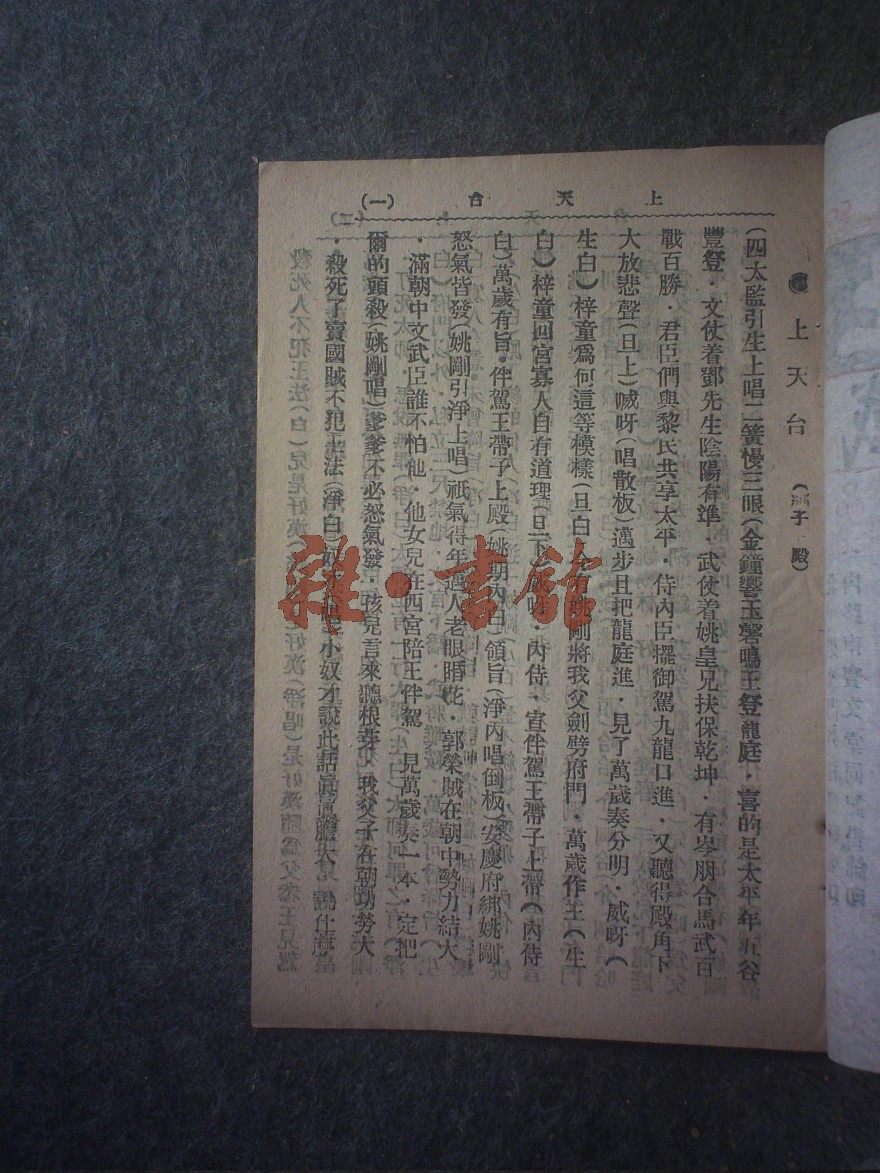 上天台 (一)
上天台
(四太監引生上唱二簧慢三眼(金鐘響玉磬鳴王登龍庭・喜的是太平年五谷
豐登・文仗着鄧先生陰陽有準・武仗着姚皇兄扶保乾坤・有岑朋合馬武百
戰百勝・君臣們與黎民共享太平・侍內臣擺御駕九龍口進・又聽得殿角下
大放悲聲(旦上)喊呀(唱散板)邁步且把龍庭進・見了萬歲奏分明・威呀(
生白)梓童爲何這等模樣(旦白)今有姚剛將我父劍劈府門・萬歲作主(生
白)梓童回宮寡人自有道理(旦下)內侍・宣伴駕王帶子上帶(內侍
白)萬歲有旨・伴駕王帶子上殿(姚期內白)領旨(淨內唱倒板)安慶府綁姚剛
怒氣皆發(姚剛引淨上唱)祇氣得年邁人老眼昏花・郭榮賊在朝中勢力結大
・滿朝中文武臣誰不怕他・他女兒在西宮陪王伴駕・見萬歲奏一本・定把
爾的頭殺(姚剛唱)爹爹不必怒氣發・孩兒言來聽根芽・我父子在朝功勞大
・殺死了賣國賊不犯王法(淨白)奴才(唱)小奴才說此話眞眞膽大
雜・書館